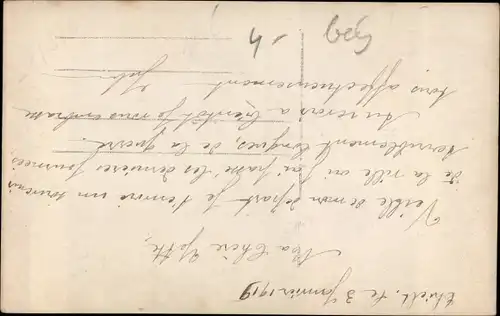 le 3 Janvier 1919
Ma chère
Veille de mon départ je t'envoie un souvenir
de la ville où j'ai passé les dernières journées
terriblement longues, de la guerre.
Au revoir à bientôt je vous embrasse
tous affectueusement